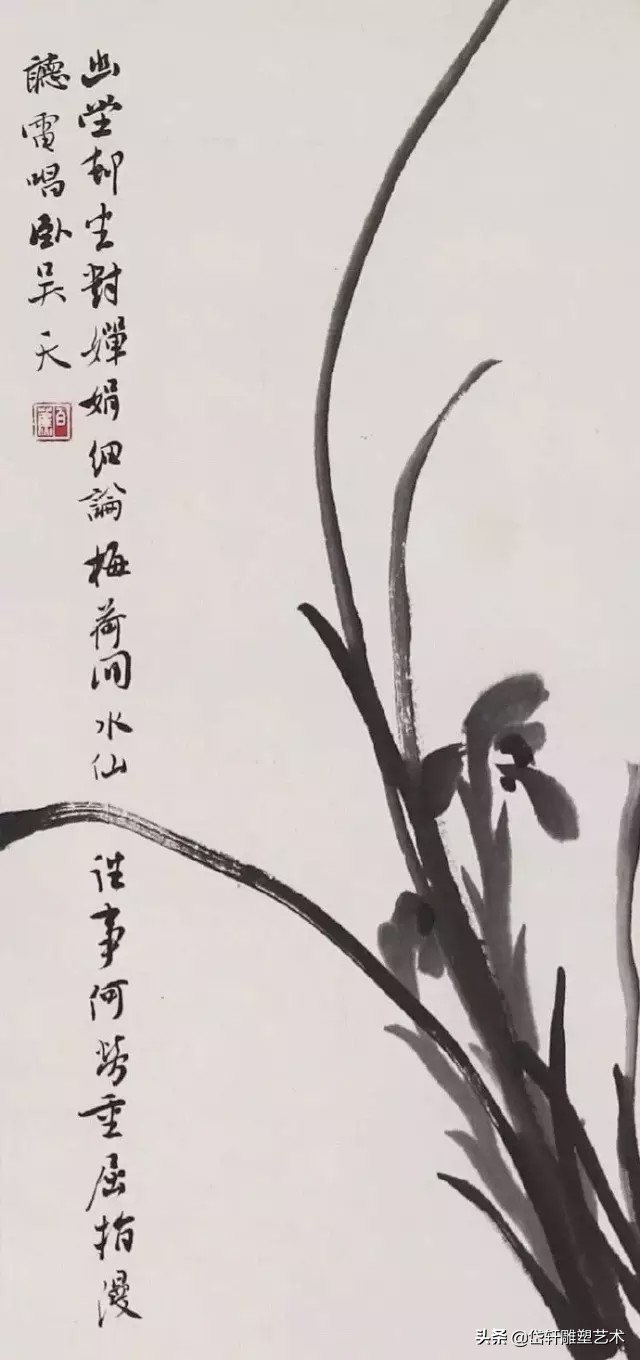 幽堂却坐對嬋娟細論梅荷问水仙 往事何勞重屈指漫
聽雷唱臥吴天
白蕉
头条 @岱轩雕塑艺术